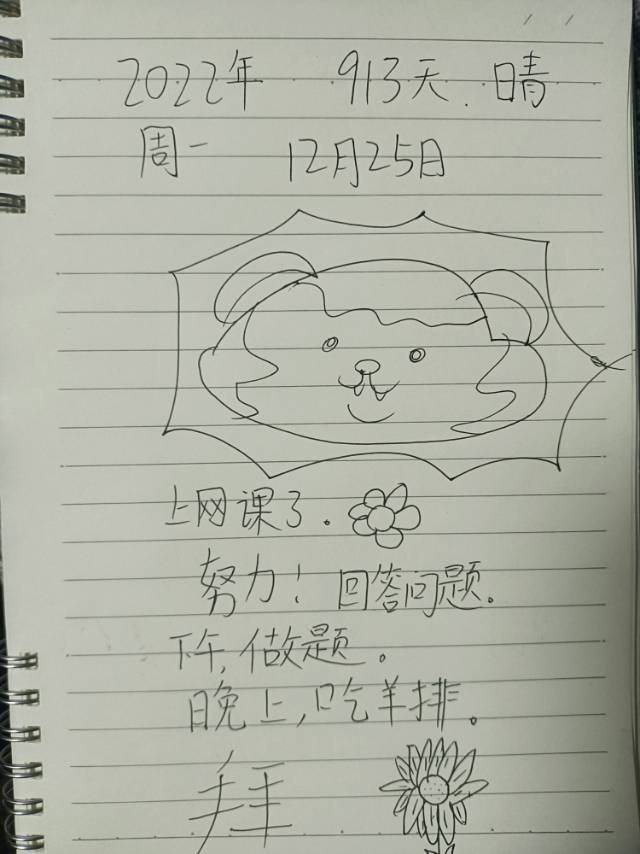 2022年 913天. 晴
周一 12月25日
上网课了.
努力! 回答问题。
下午,做题。
晚上,吃羊排。
拜